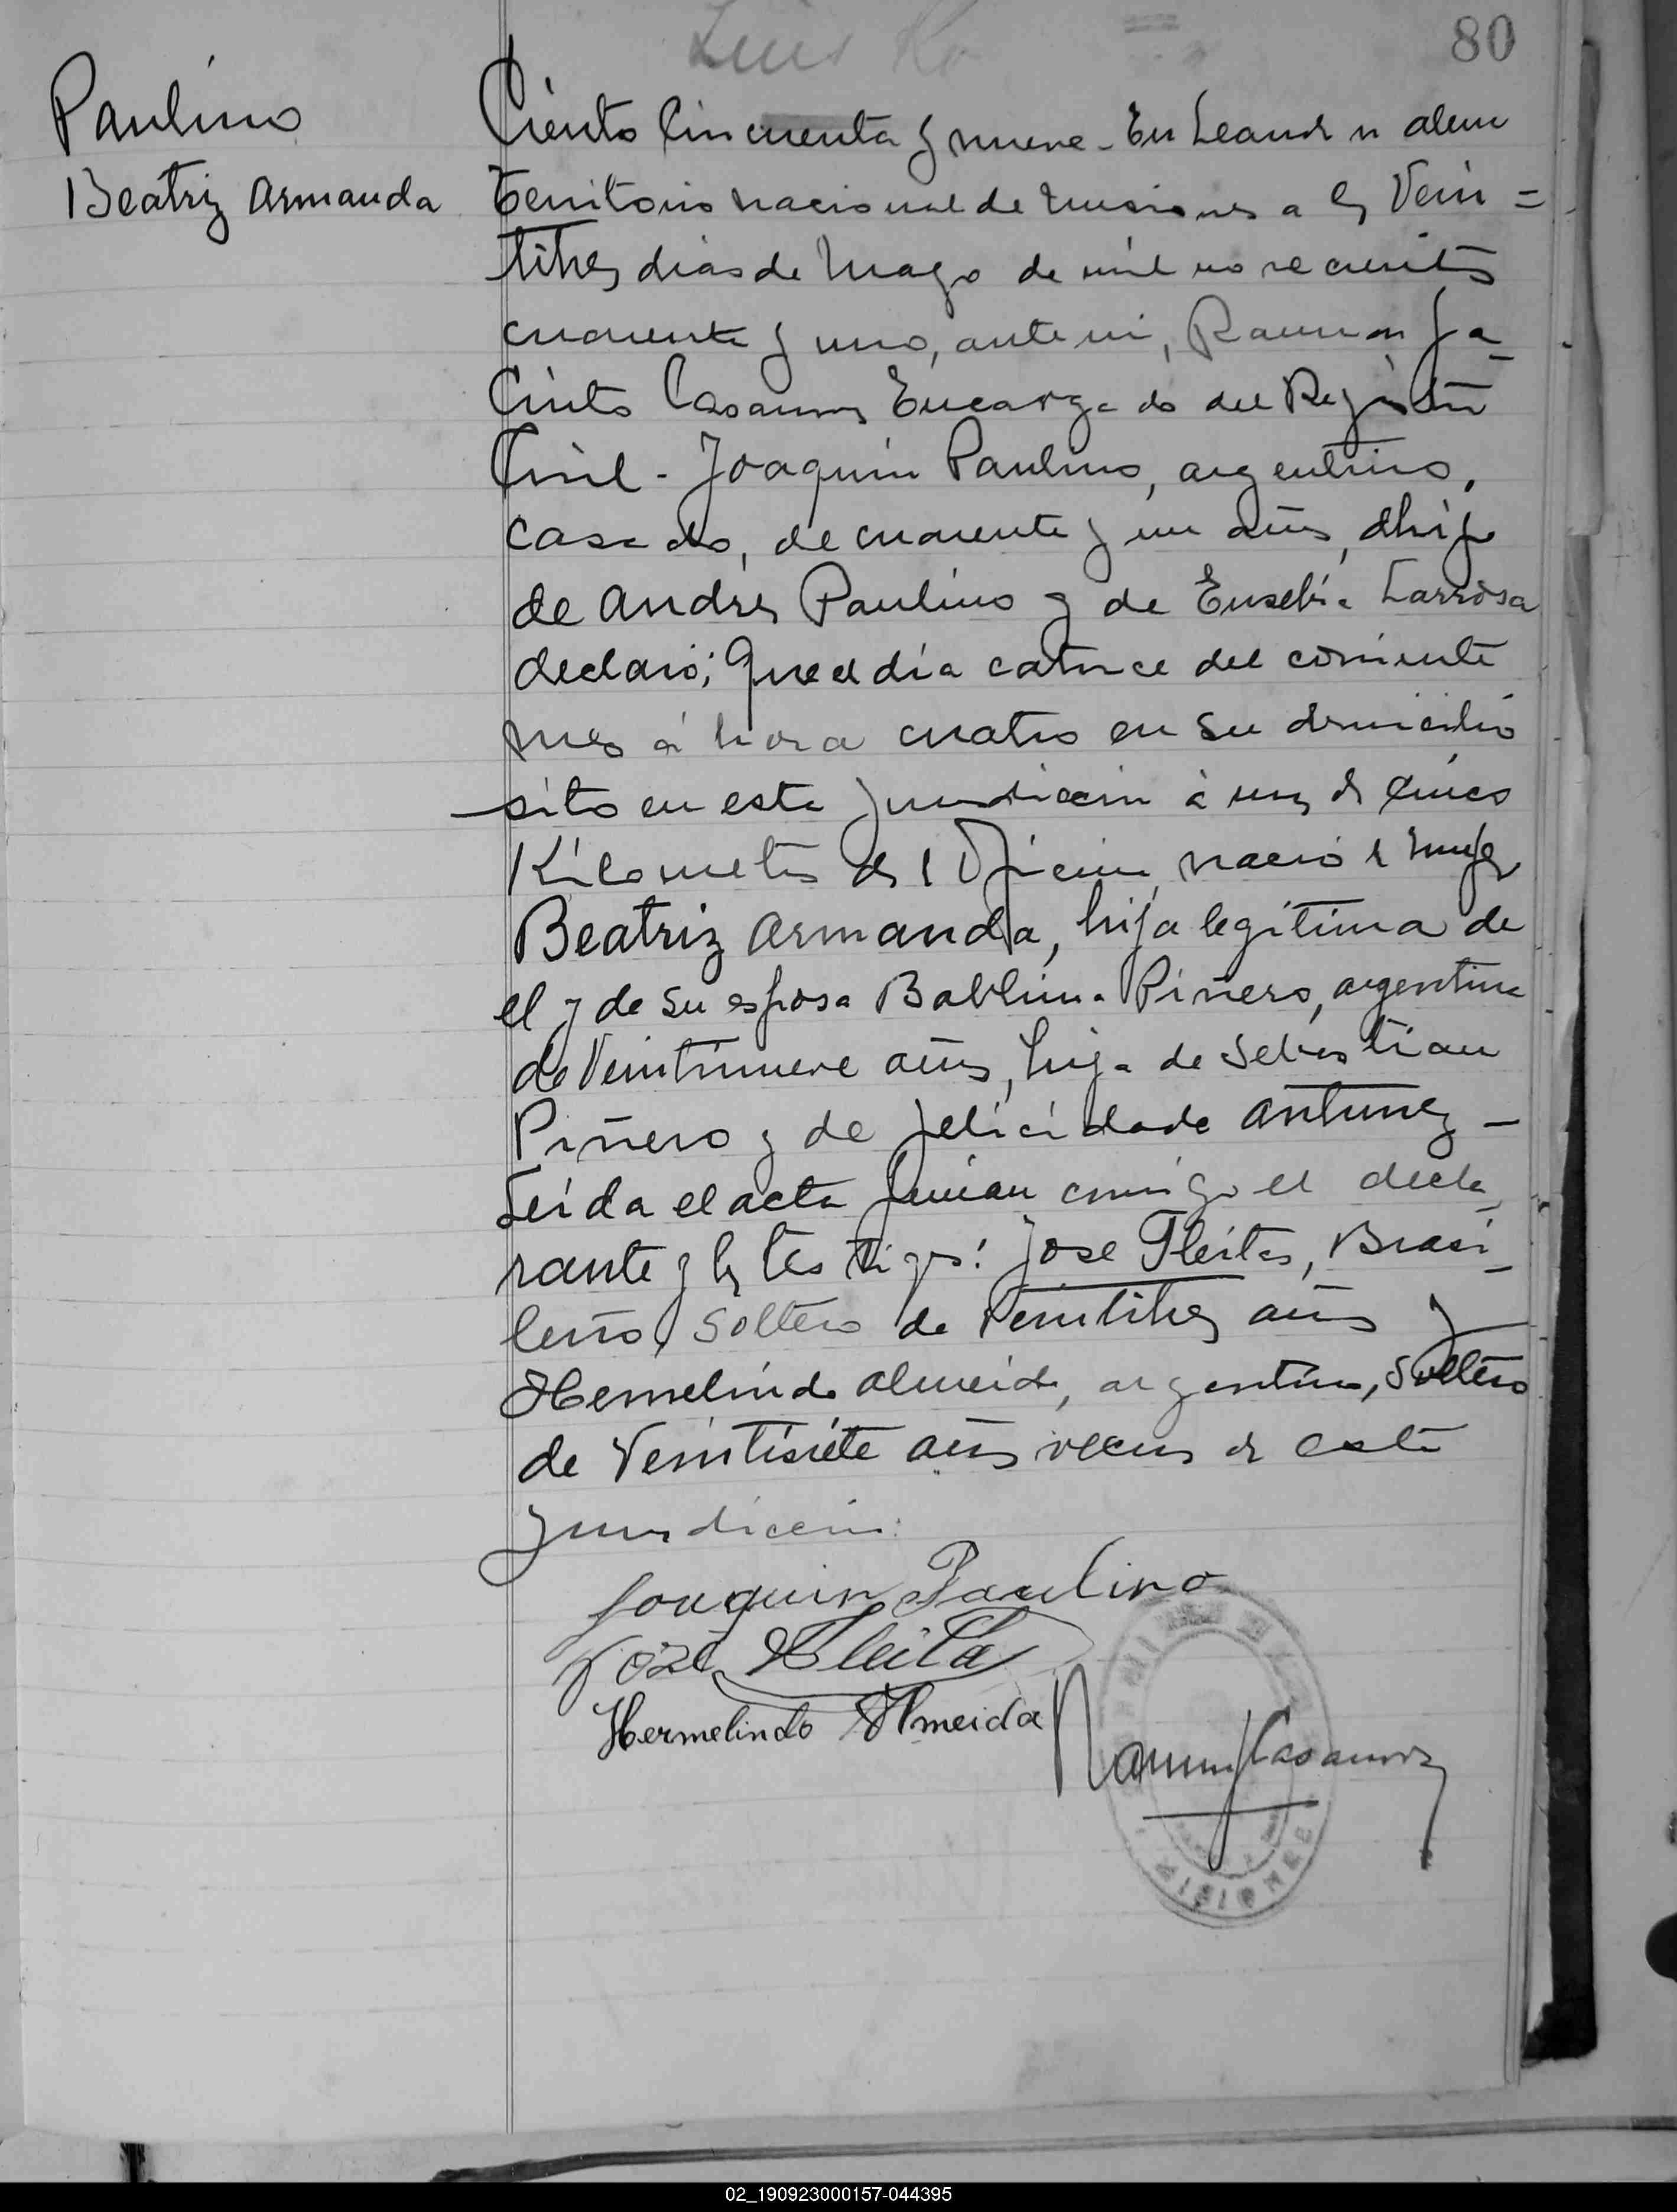 80
Paulino
Beatriz Armanda
Ciento Cincuenta y nueve - En Leandro n alem
territorio nacional de misiones a los Vein =
titres dias de mayo de mil novecientos
cuarenta y uno, ante mi, Ramon Ja-
Cinto Casanova Encargado del Registro
Civil - Joaquin Paulino, argentino,
casado, de cuarenta y un años, hijo
de Andres Paulino y de Eusebia Larrosa
declaró; Que el día catorce del corriente
mes á hora cuatro en su domicilio
sito en esta jurisdiccion á unos cinco
Kilometros de Oficina, nació la mujer
Beatriz Armanda, hija legítima de
el y de su esposa Piñero, argentina
de Veintinueve años, hija de Sebastian
Piñero y de felicidade antunez -
Leida el acta firman conmigo el decla-
rante y los testigos: Jose Fleitas, Brasi-
leño, Soltero de Veintitres años y
Hermelindo almeida, argentino, Soltero
de Veintisiete años vecinos de esta
jurisdiccion.
Joaquin Paulino
José Fleita
Hermelindo Almeida
Ramon J Casanova
MISIONES
02_190923000157-044395